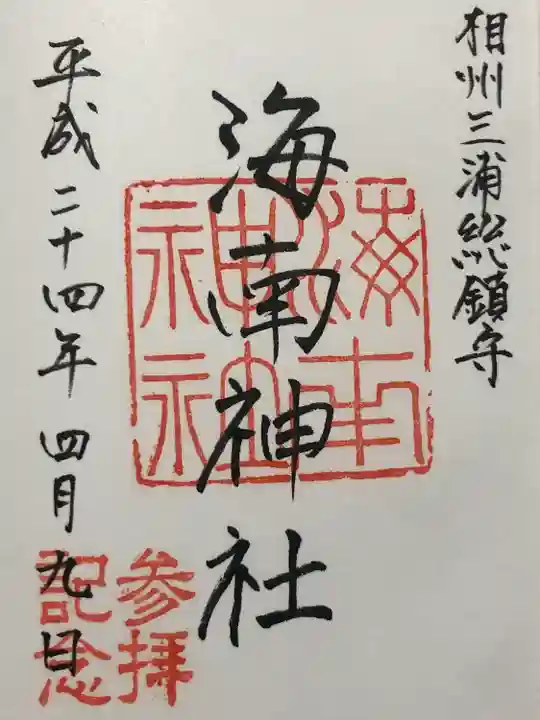 相州三浦総鎮守
海南神社
海南神社
参拝
記念
平成二十四年 四月九日